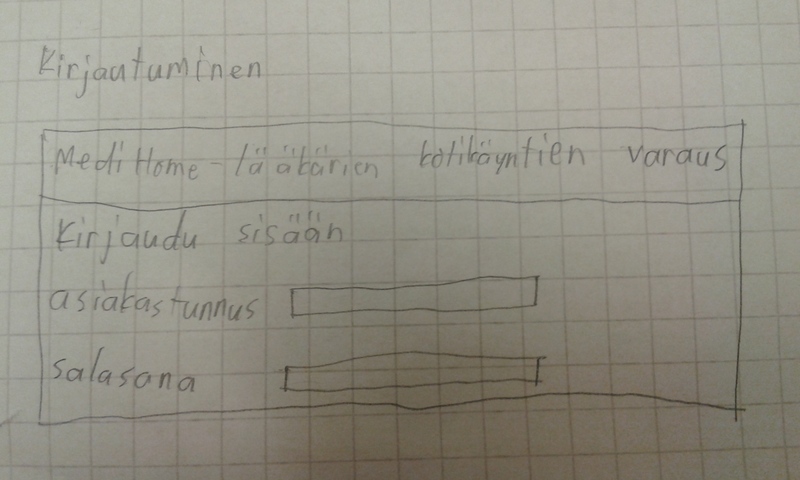 Kirjautuminen
MediHome-lääkärien kotikäyntien varaus
Kirjaudu sisään
asiakastunnus
salasana